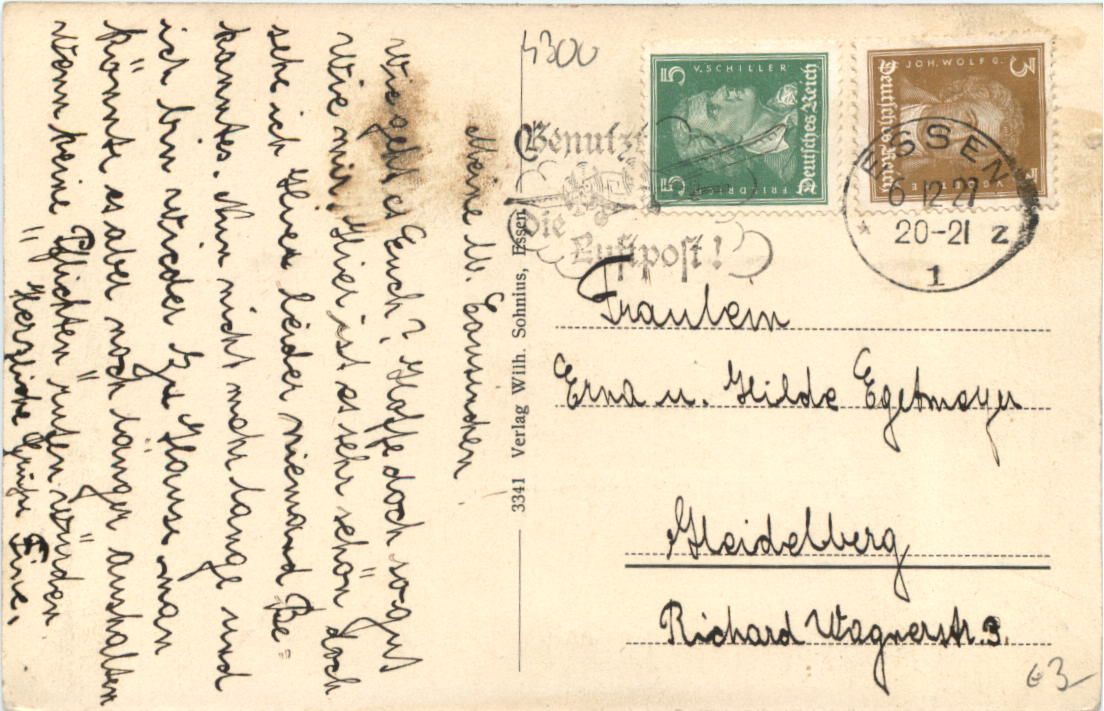 Meine l. Cousinen
Wie geht es Euch? Hoffe doch so gut
wie mir. Hier ist es sehr schön doch
sehe ich hier leider niemand Be-
kanntes. Nun nicht mehr lange und
ich bin wieder zu Hause man
könnte es aber noch länger aushalten
wenn keine Pflichten rufen würden
Herzliche Grüße Eure
3341 Verlag Wilh. Sohnius, Essen
4300
Benutzt
Die
Luftpost!
5 V. SCHILLER
Deutsches Reich
5 FRIEDRICH
3 JOH. WOLFG.
Deutsches Reich
ESSEN
6 12 27
20-21 Z
1
Fräulein
Erna u. Hilde Egetmeyer
Heidelberg
Richard Wagnerstr. 3.
€ 3-